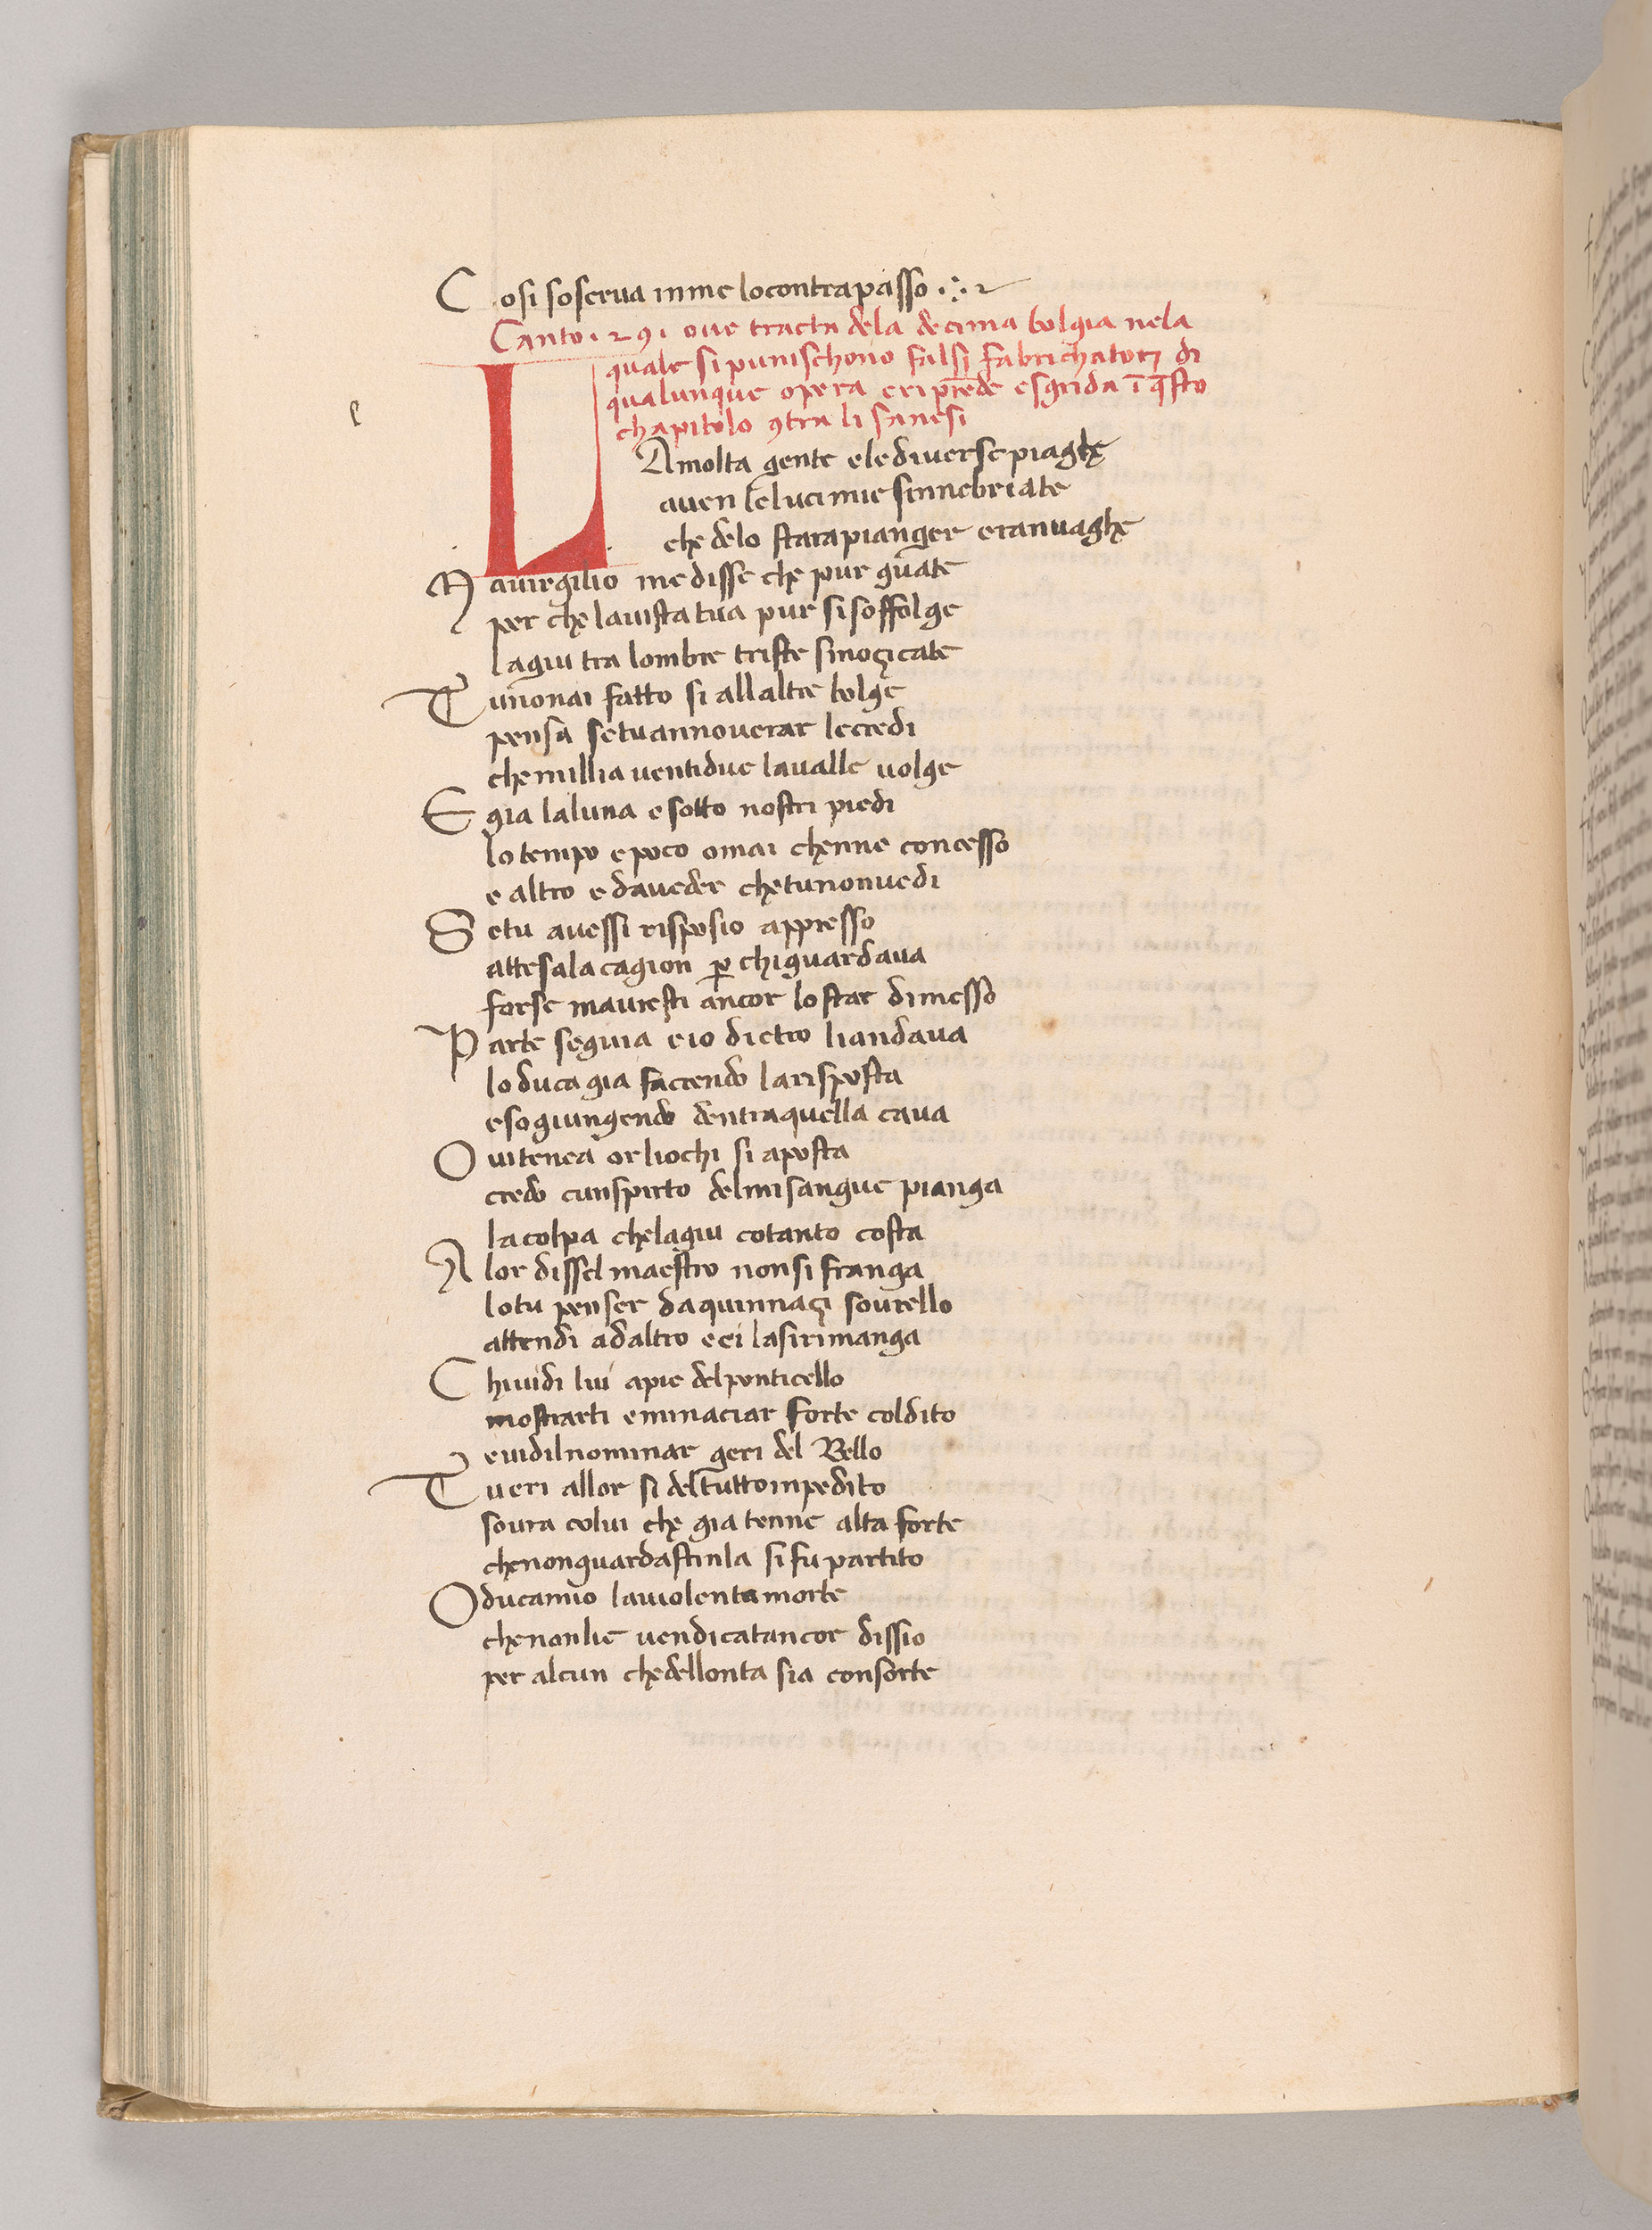 Cosi soserva inme locontrapasso
Canto · 29 · ove tracta dela decima bolgia nela
quale si punischono falsi fabrichatori di
qualunque opera e riprēde e sgrida ī q̄sto
chapitolo 9tra li sanesi
LAmolta gente ele diverse piaghe
aven le luci mie sinnebriate
che delo stara pianger eran vaghe
Mavirgilio me disse che pur guate
per che la vista tua pur si soffolge
lagiu tra lombre triste smoçicate
Tu nonai fatto si allaltre bolge
pensa setu annoverar lecredi
che millia ventidue lavalle volge
E gia laluna e sotto nostri piedi
lo tempo e poco omai chenne concesso
e altro e daveder chetu nonvedi
Setu avessi risposio appresso
attesala cagion p̱ chi guardava
forse mavresti ancor lo star dimesso
Parte seguia eio dietro liandava
lo duca gia faccendo larisposta
e sogiungendo dentraquella cava
Ovitenea or liochi si aposta
credo cunspirto delmi sangue pianga
lacolpa chelagiu cotanto costa
Alor dissel maestro non si franga
lotu penser daquinnaçi sovrello
attendi adaltro e ei lasirimanga
Chividi lui apie delponticello
mostrarti eminaciar forte coldito
e vidilnominar geri del Bello
Tu eri allor si deltuttompedito
sovra colui che gia tenne altaforte
chenonguardastinla si fu partito
Oducamio laviolenta morte
chenonlie vendicatancor dissio
per alcun chedellonta sia consorte